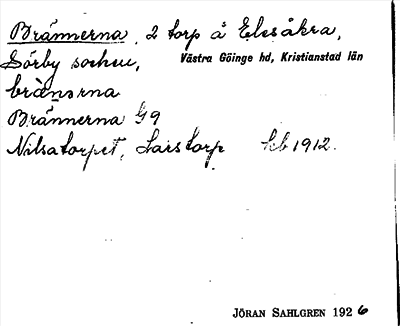 Brännerna, 2 torp å Elesåkra,
Sörby socken, Västra Göinge hd, Kristianstad län
brànərna
Brännerna G9
Nilsatorpet, Larstorp kb 1912.
JÖRAN SAHLGREN 1926